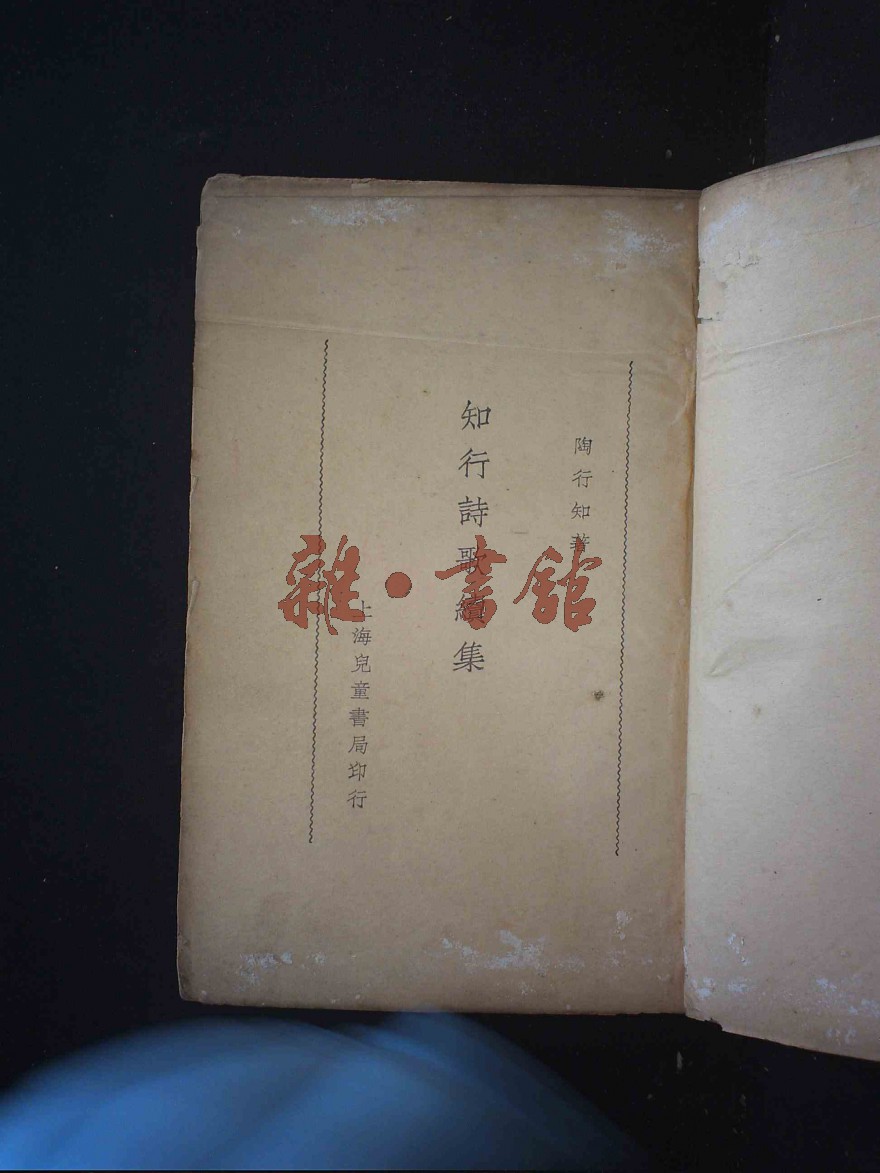 陶行知著
知行詩歌續集
上海兒童書局印行
雜·書館